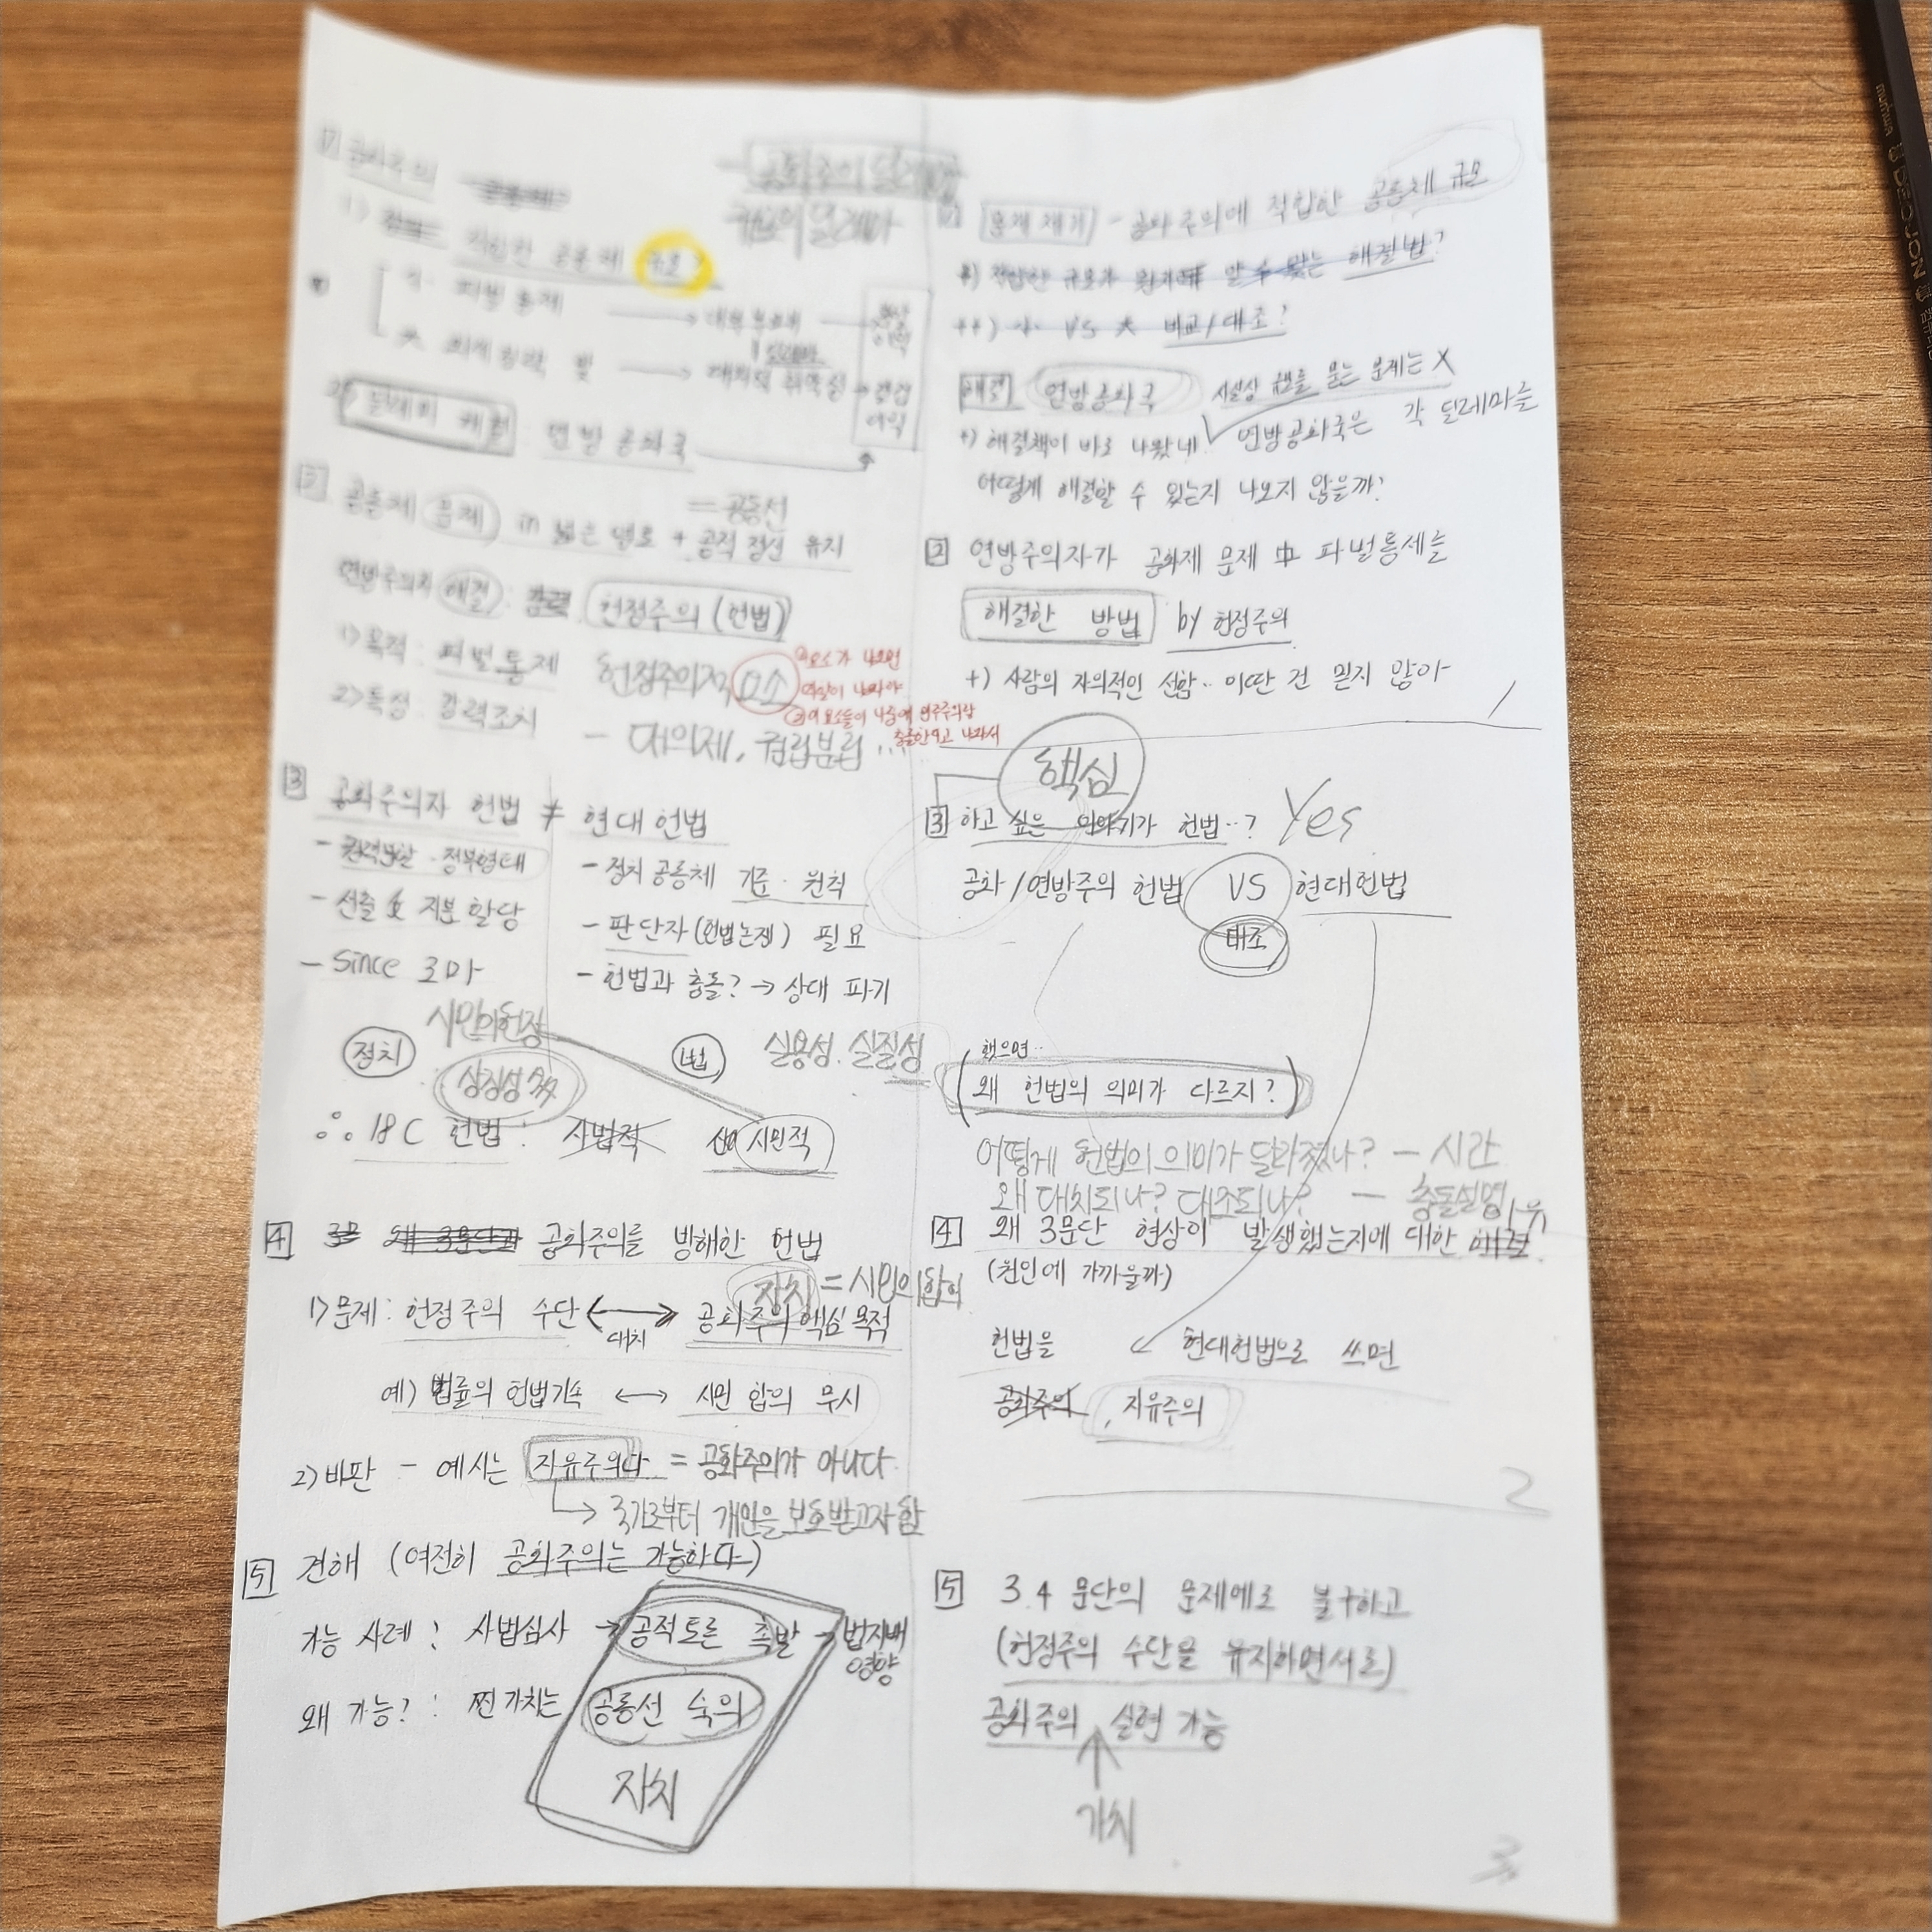 공화주의
규모의 딜레마
1) 적합한 공동체 규모?
小 파벌 통제 → 내부 부패
大 → 대외적 취약성
연방 공화국
2 공동체 문제 in 넓은 영토 + 공적 정신 유지
= 공동선
연방주의자 해결 : 헌정주의 (헌법)
1) 목적 : 파벌 통제
2) 특성 : 강력조치
헌정주의적 요소
- 대의제, 권력분립 ...
① 요소가 나오면
3 공화주의자 헌법 ≠ 현대 헌법
- 권력분할·정부형태
- 선출 및 지분 할당
- Since 로마
- 정치 공동체 기준·원칙
- 판단자 (헌법논쟁) 필요
- 헌법과 충돌? → 상대 파기
시민의 헌장
정치
상징성 多
법
실용성. 실질성
∴ 18C 헌법 : 사법적 시민적
4 공화주의를 방해한 헌법
자치 = 시민의 합의
1) 문제 : 헌정주의 수단 ↔ 공화주의 핵심 목적
대치
예) 법률의 헌법기속 ↔ 시민 합의 무시
2) 비판 - 예시는 자유주의다 = 공화주의가 아니다.
→ 국가로부터 개인을 보호받고자 함
5 견해 (여전히 공화주의는 가능하다)
가능 사례 : 사법심사 → 공적토론 촉발 → 법지배
영향
왜 가능? : 찐 가치는 공동선 숙의
자치
문제 제기 - 공화주의에 적합한 공동체 규모
+) 적합한 규모가 뭔지 알 수 있는 해결법?
++) 小 VS 大 비교/대조?
해결 연방공화국
사실상 규모를 묻는 문제는 X
+) 해결책이 바로 나왔네 ✓ 연방공화국은 각 딜레마를
어떻게 해결할 수 있는지 나오지 않을까?
2 연방주의자가 공화제 문제 中 파벌통제를
해결한 방법 by 헌정주의
+) 사람의 자의적인 선함.. 이딴 건 믿지 않아
1
핵심
3 하고 싶은 이야기가 헌법..? Yes
공화/연방주의 헌법 VS 현대헌법
대조
했으면..
(왜 헌법의 의미가 다르지?)
어떻게 헌법의 의미가 달라졌나? - 시간
왜 대치되나? 대조되나? - 충돌설명
4 왜 3문단 현상이 발생했는지에 대한
(원인에 가까울까)
헌법을 ↙ 현대헌법으로 쓰면
공화주의, 자유주의
2
5 3.4 문단의 문제에도 불구하고
(헌정주의 수단을 유지하면서로)
공화주의 실현 가능
↑
가치
3